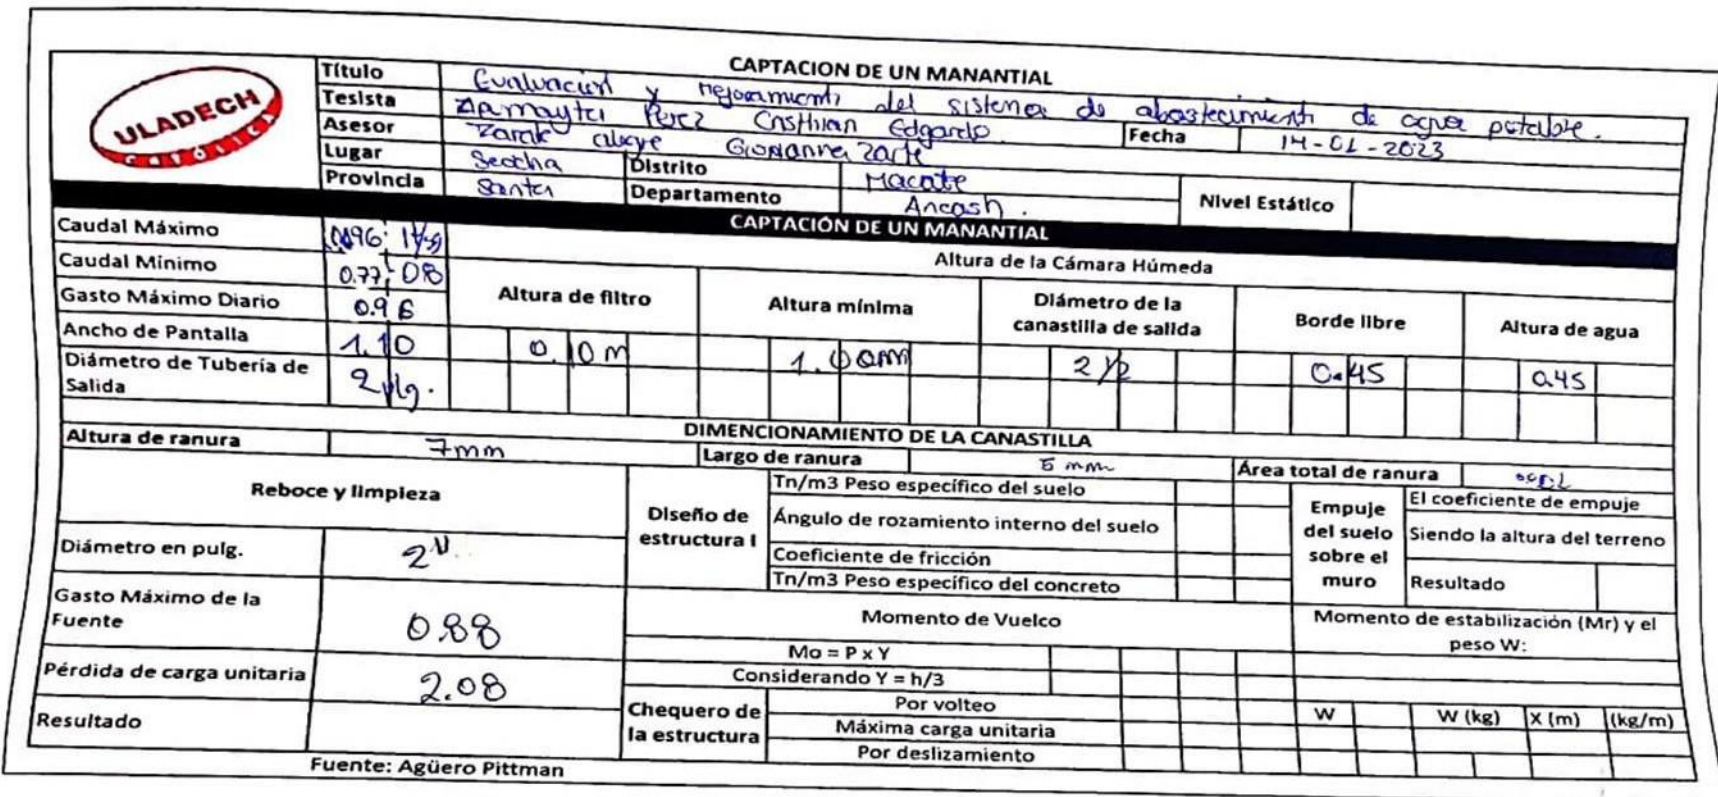 ULADECH
CATÓLICA
CAPTACION DE UN MANANTIAL
Título Evaluación y mejoramiento del sistema de abastecimiento de agua potable.
Tesista Perez Cristhian Edgardo
Fecha 14-01-2023
Asesor Giovanna
Lugar Seccha Distrito Macate
Provincia Santa Departamento Ancash.
Nivel Estático
CAPTACIÓN DE UN MANANTIAL
Caudal Máximo
Altura de la Cámara Húmeda
Caudal Mínimo 0.77; 08
Gasto Máximo Diario 0.96
Altura de filtro Altura mínima Diámetro de la canastilla de salida Borde libre Altura de agua
Ancho de Pantalla 1.10
0.10m 1.00m 2 1/2 0.45 0.45
Diámetro de Tubería de Salida
DIMENCIONAMIENTO DE LA CANASTILLA
Altura de ranura 7mm Largo de ranura 5 mm Área total de ranura
Reboce y limpieza
Diámetro en pulg. 2"
Gasto Máximo de la Fuente 0.88
Pérdida de carga unitaria 2.08
Resultado
Diseño de estructura I
Tn/m3 Peso específico del suelo
Ángulo de rozamiento interno del suelo
Coeficiente de fricción
Tn/m3 Peso específico del concreto
Empuje del suelo sobre el muro
El coeficiente de empuje
Siendo la altura del terreno
Resultado
Momento de Vuelco
Mo = P x Y
Considerando Y = h/3
Momento de estabilización (Mr) y el peso W:
Chequero de la estructura
Por volteo
Máxima carga unitaria
Por deslizamiento
W W (kg) X (m) (kg/m)
Fuente: Agüero Pittman